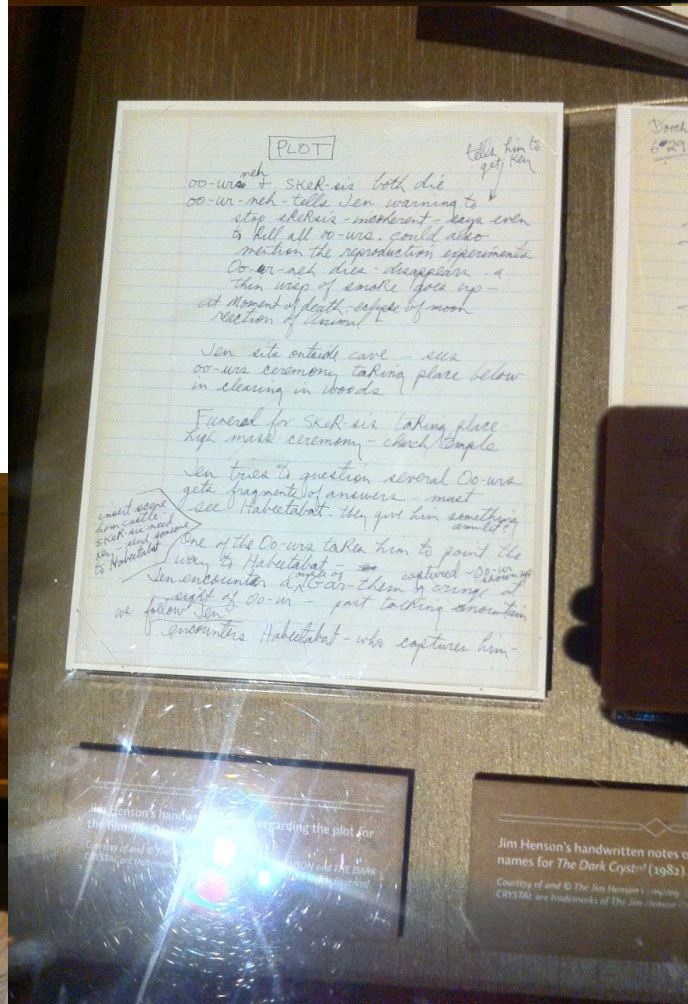 PLOT
tells him to
get key
neh
oo-urs & SKeR-sis both die
oo-ur-neh - tells Jen warning to
stop skeRsis - incoherent - says even
to kill all oo-urs. could also
mention the reproduction experiments
Oo-ur-neh dies - disappears - a
thin wisp of smoke goes up -
at moment of death - eclipse of moon
reaction of animal
Jen sits outside cave - sees
oo-urs ceremony taking place below
in clearing in woods
Funeral for SKeR-sis taking place -
high mass - ceremony - church/temple
Jen tries to question several Oo-urs
gets fragments of answers - must
see Habeetabat - they give him something
amulet?
insert scene
from castle -
SKeR-sis need
key - send someone
to Habeetabat
One of the Oo-urs takes him to point the
way to Habeetabat -
Jen encounters a couple of Gar-them captured - Oo-ur
shows up
cringe at
sight of Oo-ur - part talking mountain
we follow Jen
encounters Habeetabat - who captures him -
Dorch
6-29
Jim Henson's regarding the plot for
the film The Dark
Courtesy of and © The HENSON and THE DARK
CRYSTAL are trademarks
Jim Henson's handwritten notes o
names for The Dark Crystal (1982).
Courtesy of and © The Jim Henson Company
CRYSTAL are trademarks of The Jim Henson Co